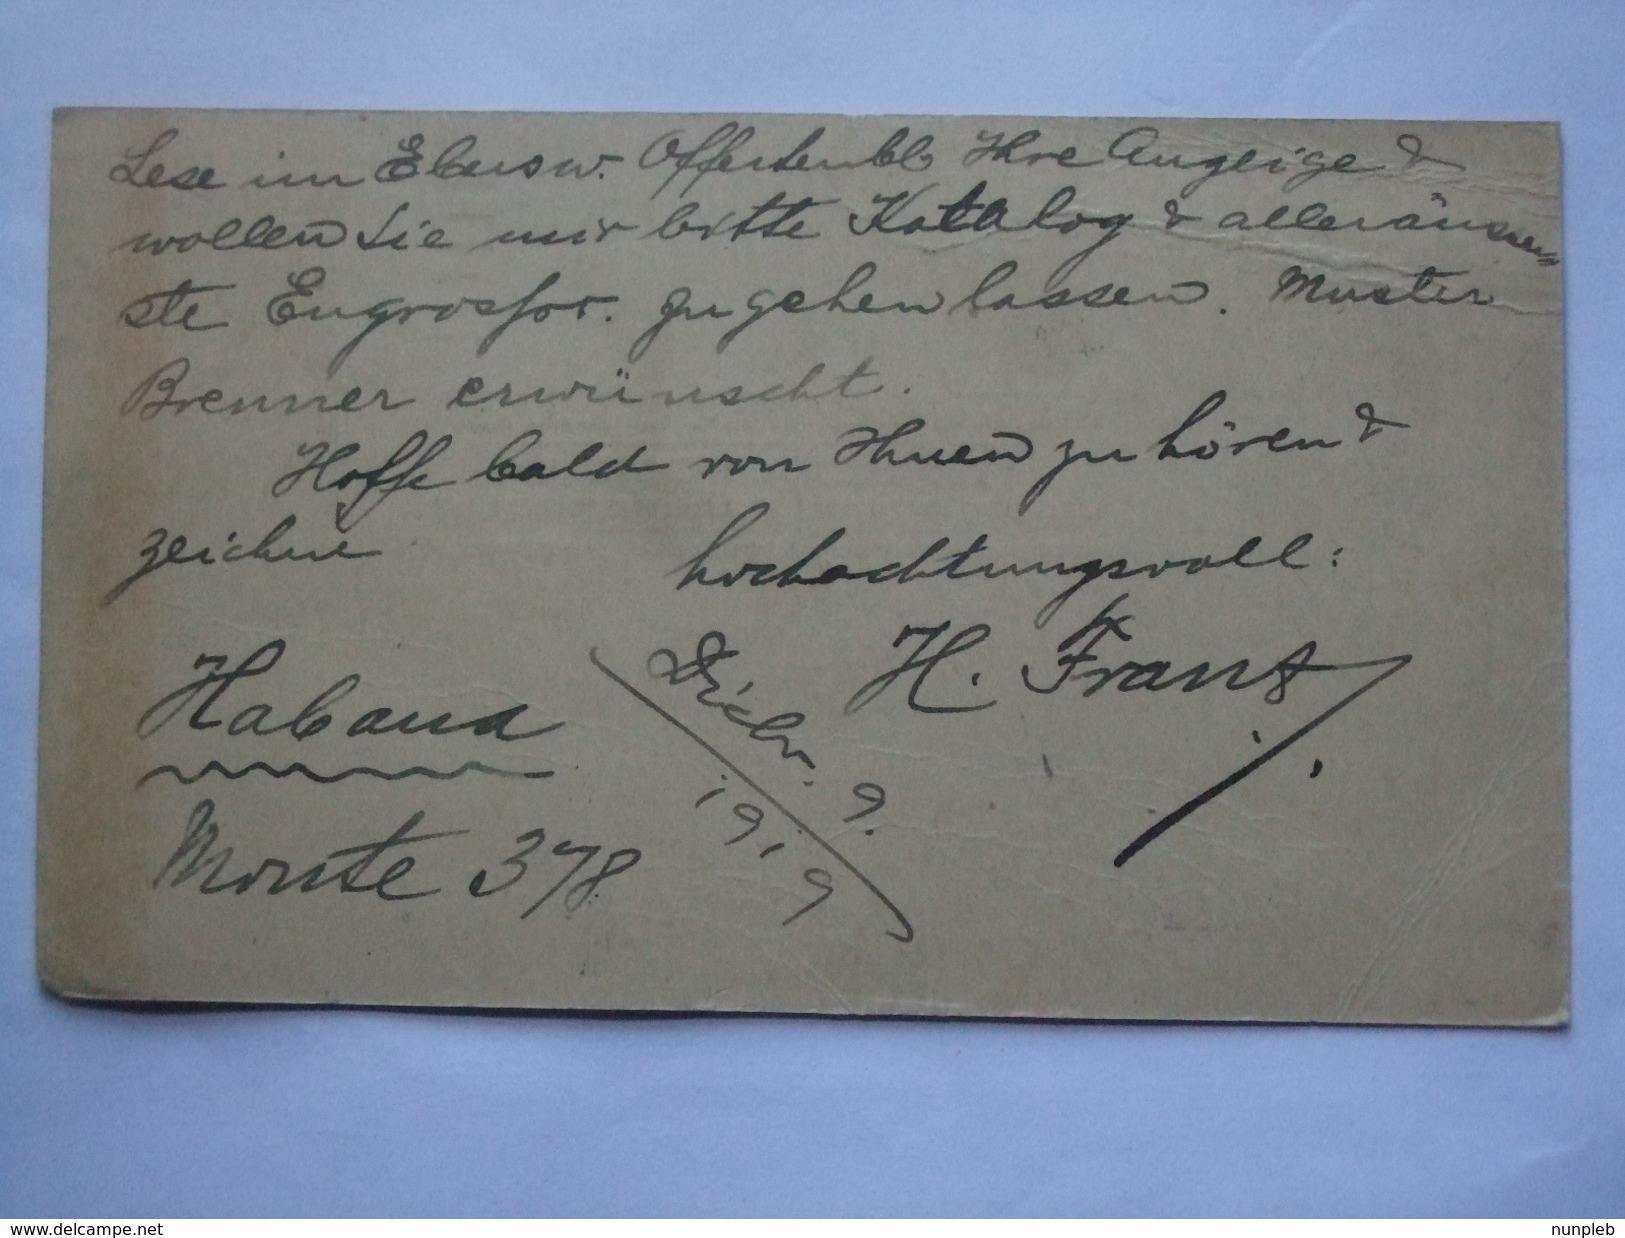 Lese im Ebersw. Offertenbl. Ihre Anzeige &
wollen Sie mir bitte Katalog & alleräussen=
ste Engrosfor. zugehen lassen. Muster
Brenner erwünscht.
Hoffe bald von Ihnen zu hören &
zeichne hochachtungsvoll:
H. Frant
Habana
Monte 378
Dicbr. 9.
1919
delcampe.net
nunpleb